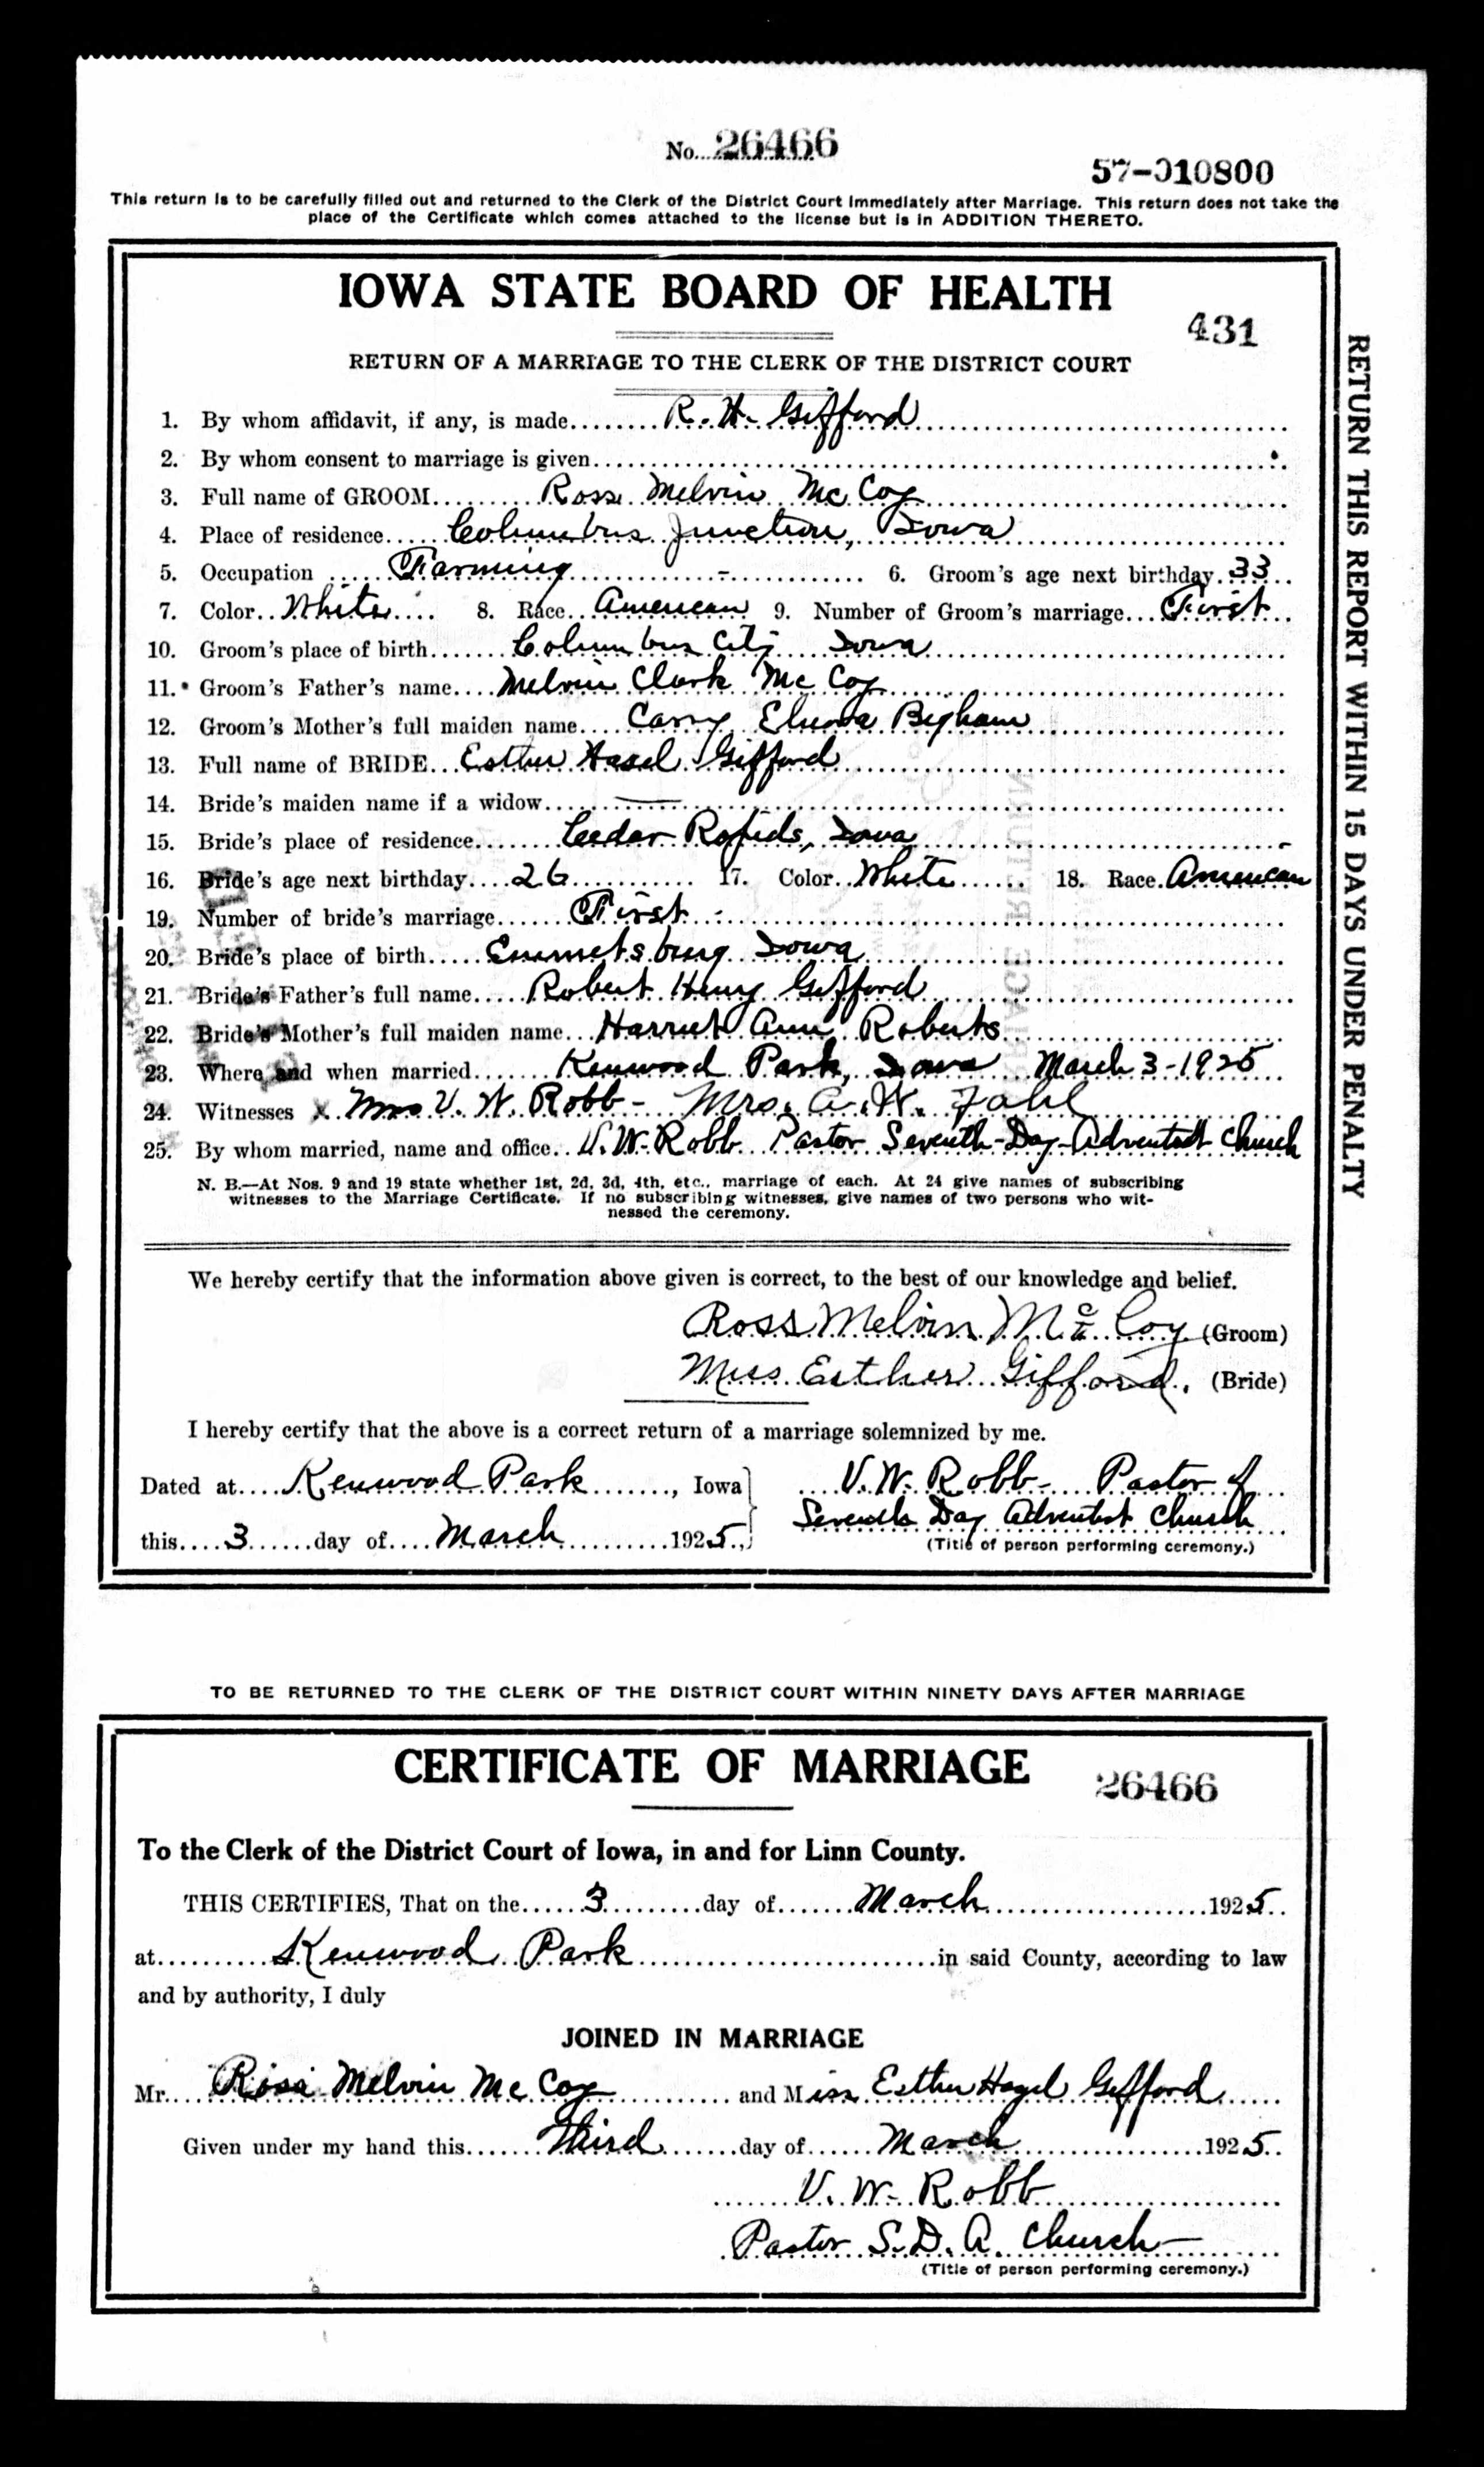 No. 26466
57-010800
This return is to be carefully filled out and returned to the Clerk of the District Court immediately after Marriage. This return does not take the
place of the Certificate which comes attached to the license but is in ADDITION THERETO.
IOWA STATE BOARD OF HEALTH
431
RETURN OF A MARRIAGE TO THE CLERK OF THE DISTRICT COURT
1. By whom affidavit, if any, is made R. H. Gifford
2. By whom consent to marriage is given
3. Full name of GROOM Ross Melvin McCoy
4. Place of residence Columbus Junction, Iowa
5. Occupation Farming - 6. Groom's age next birthday 33
7. Color White 8. Race American 9. Number of Groom's marriage First
10. Groom's place of birth Columbus City Iowa
11. Groom's Father's name Melvin Clark McCoy
12. Groom's Mother's full maiden name Carry Bigham
13. Full name of BRIDE Esther Hasel Gifford
14. Bride's maiden name if a widow —
15. Bride's place of residence Ceedar Rapids, Iowa
16. Bride's age next birthday 26 17. Color White 18. Race American
19. Number of bride's marriage First -
20. Bride's place of birth Emmetsburg Iowa
21. Bride's Father's full name Robert Henry Gifford
22. Bride's Mother's full maiden name Harriet Ann Roberts
23. Where and when married Kenwood Park, Iowa March 3-1925
24. Witnesses x Mrs V. W. Robb - Mrs. A. W. Fahl
25. By whom married, name and office V. W. Robb Pastor Seventh-Day-Adventist Church
N. B.—At Nos. 9 and 19 state whether 1st, 2d, 3d, 4th, etc., marriage of each. At 24 give names of subscribing
witnesses to the Marriage Certificate. If no subscribing witnesses, give names of two persons who wit-
nessed the ceremony.
We hereby certify that the information above given is correct, to the best of our knowledge and belief.
Ross Melvin McCoy (Groom)
Miss Esther Gifford. (Bride)
I hereby certify that the above is a correct return of a marriage solemnized by me.
Dated at Kenwood Park, Iowa V. W. Robb - Pastor of
Seventh Day Adventist Church
this 3 day of March 1925.,
(Title of person performing ceremony.)
RETURN THIS REPORT WITHIN 15 DAYS UNDER PENALTY
TO BE RETURNED TO THE CLERK OF THE DISTRICT COURT WITHIN NINETY DAYS AFTER MARRIAGE
CERTIFICATE OF MARRIAGE
26466
To the Clerk of the District Court of Iowa, in and for Linn County.
THIS CERTIFIES, That on the 3 day of March 1925
at Kenwood Park in said County, according to law
and by authority, I duly
JOINED IN MARRIAGE
Mr. Ross Melvin McCoy and Miss Esther Hazel Gifford
Given under my hand this Third day of March 1925
V. W. Robb
Pastor S. D. A. Church
(Title of person performing ceremony.)